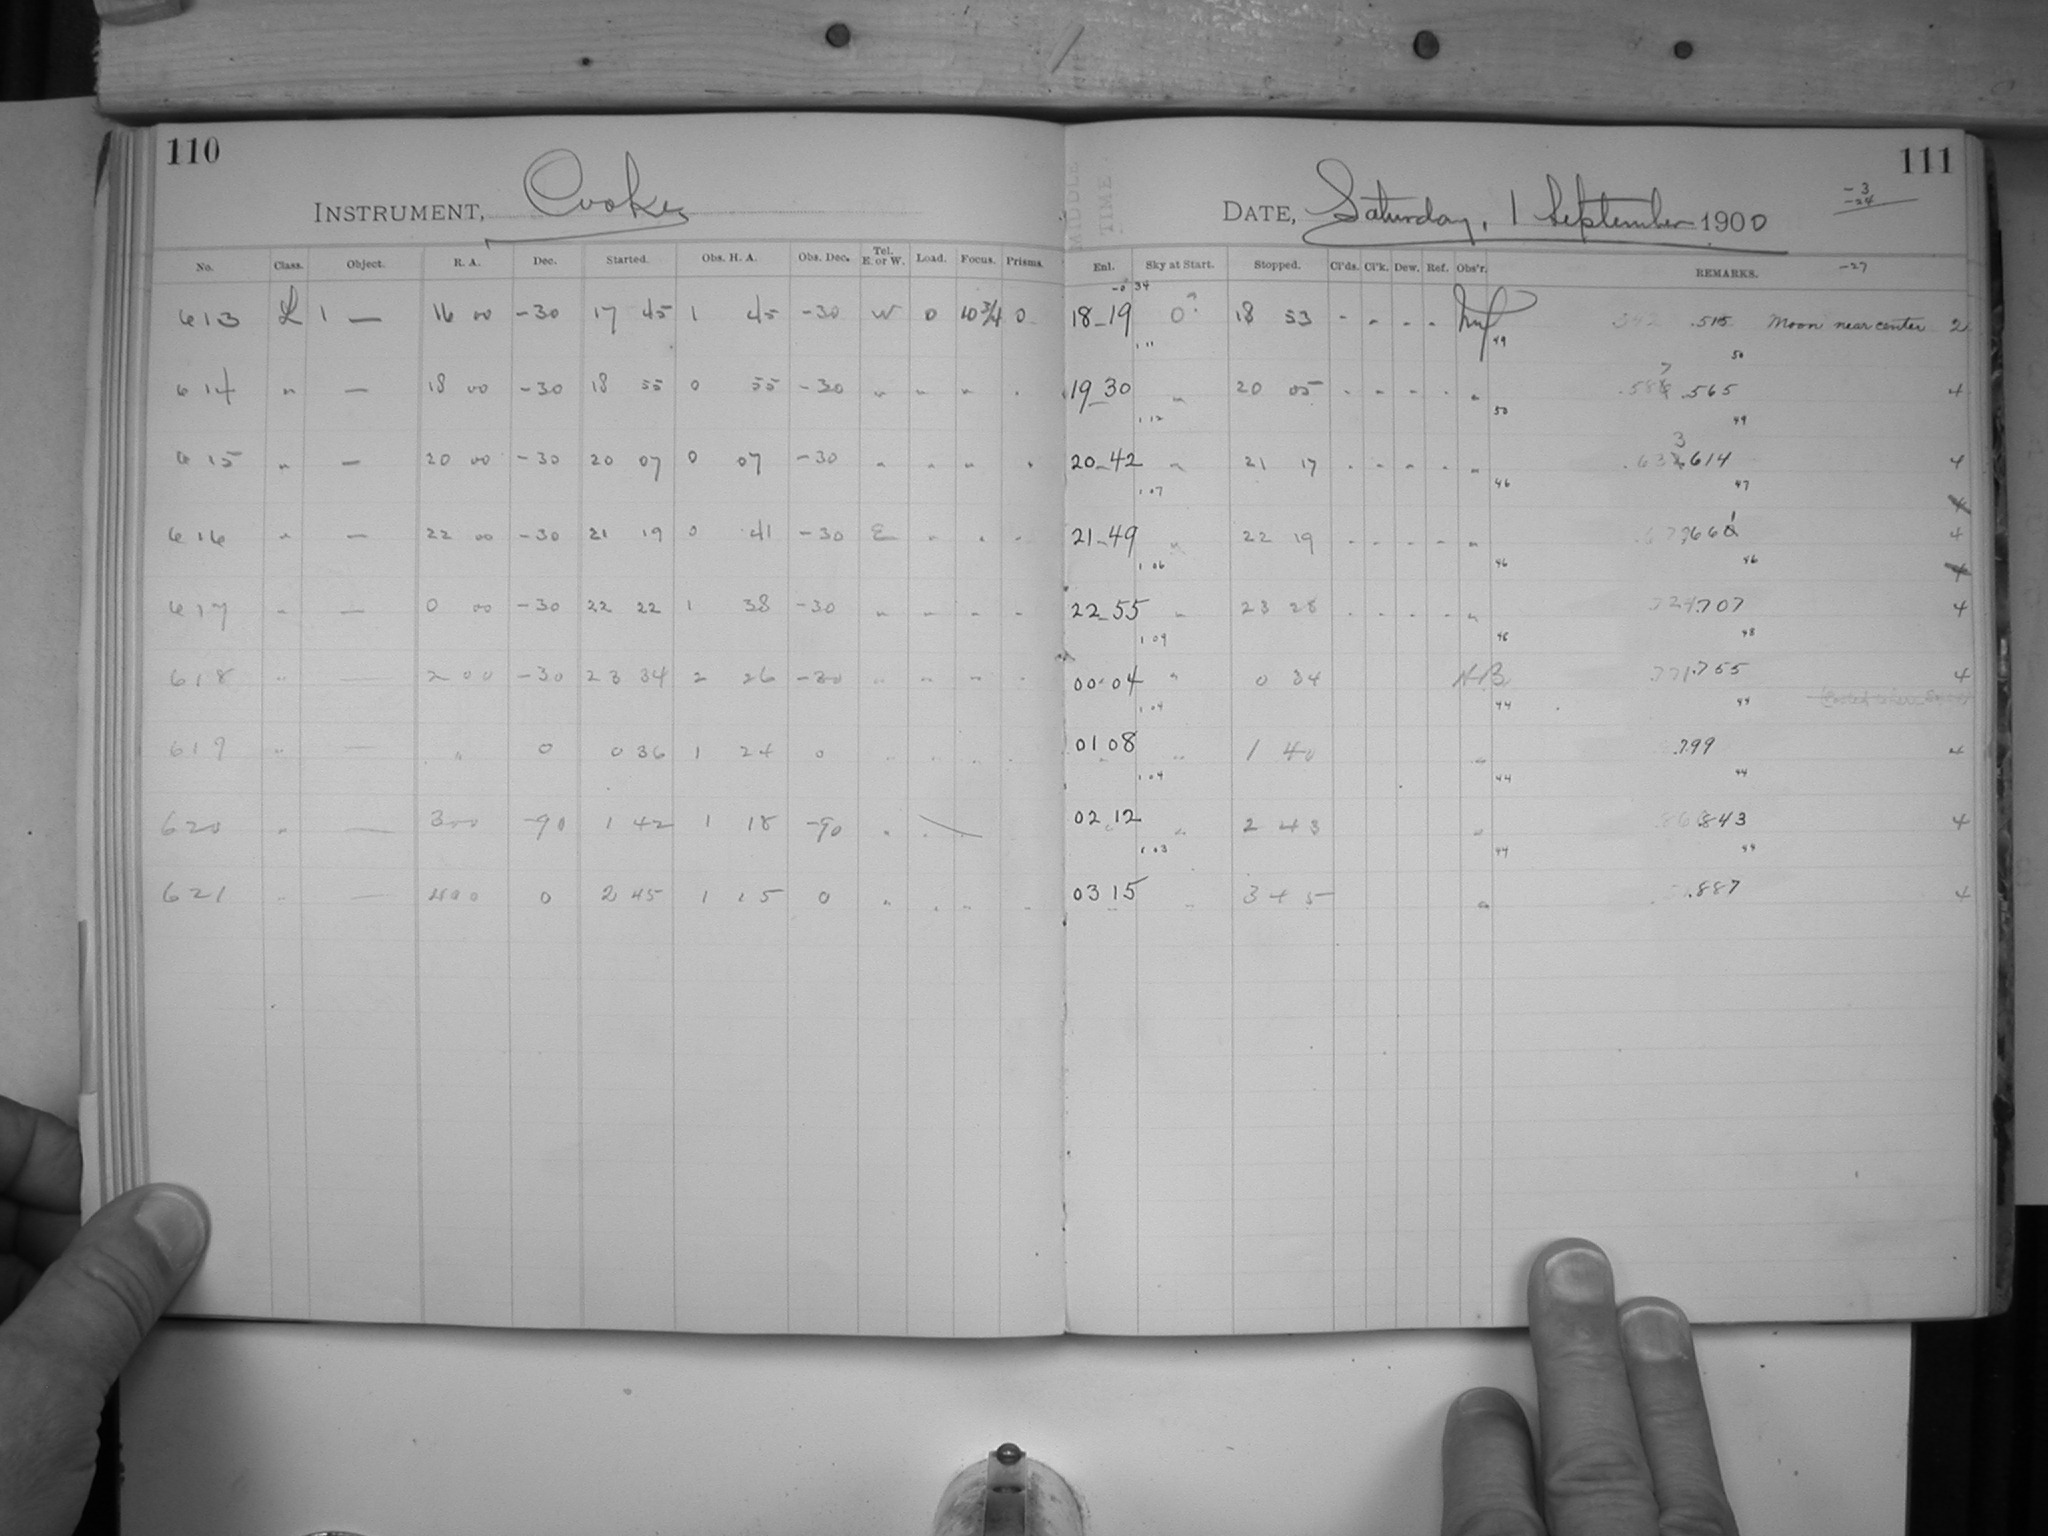 110
INSTRUMENT, Cooke
No. Class. Object. R. A. Dec. Started. Obs. H. A. Obs. Dec. Tel. E. or W. Load. Focus. Prisms.
613 L 1 — 16 00 -30 17 45 1 45 -30 W 0 10 3/4 0
614 " — 18 00 -30 18 55 0 55 -30 " " "
615 " — 20 00 -30 20 07 0 07 -30 " " "
616 " — 22 00 -30 21 19 0 41 -30 E " " "
617 " — 0 00 -30 22 22 1 38 -30 " " " "
618 " — 2 00 -30 23 34 2 26 -30 " " " "
619 " — " 0 0 36 1 24 0 " " " "
620 " — 3 00 -90 1 42 1 18 -90 " "
621 " — 4 00 0 2 45 1 15 0 " " " "
111
DATE, Saturday, 1 September 1900
-3
-24
-27
Enl. Sky at Start. Stopped. Cl'ds. Cl'k. Dew. Ref. Obs'r. REMARKS.
34
18-19 0? 18 53 - - - - .515 Moon near center 2
1 11 49 50
19-30 " 20 05 - - - - " .565 4
1 12 50 49
20-42 " 21 17 - - - - " .614 4
1 07 46 47
21-49 " 22 19 - - - - " .661 4
1 06 46 46
22-55 " 23 28 - - - - " .724 .707 4
1 09 48 48
00 04 " 0 34 .771 .755 4
1 04 44 44
01 08 " 1 40 " .799 4
1 04 44 44
02 12 " 2 43 " .843 4
1 03 44 44
03 15 " 3 45 " .887 4